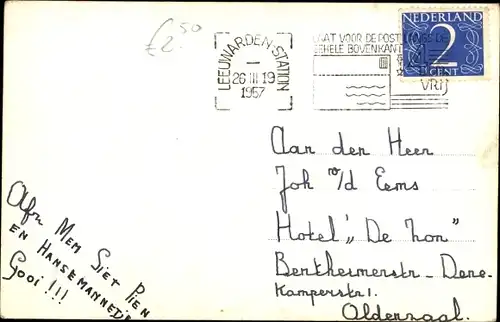 £2.50
LEEUWARDEN-STATION
26 III 19
1957
LAAT VOOR DE POST LANGS DE
GEHELE BOVENKANT
VRIJ
NEDERLAND
2
CENT
Aan den Heer
Joh v/d Eems
Hotel "De Zon"
Benthemerstr – Dene-
kamperstr 1.
Oldenzaal.
Afz. Mem Siet Pien
en Hansemannetje
Gooi!!!